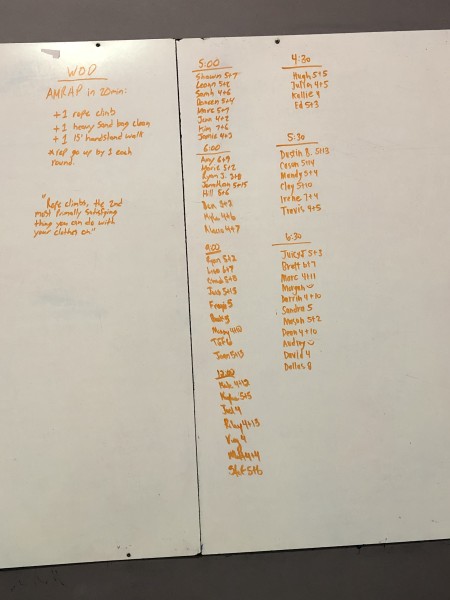 WOD
AMRAP in 20min:
+1 rope climb
+1 heavy Sand bag clean
+1 15' handstand walk
*rep go up by 1 each
round.
"Rope climbs, the 2nd
most Primally Satisfying
thing you can do with
your clothes on"
5:00
Shawn 5+7
Leann 5+2
Samh 4+6
Doreen 5+4
Marc 5+7
Juan 4+2
Kim 7+6
Jamie 4+3
6:00
Amy 6+9
Marie 5+2
Ryan J. 3+8
Jonathan 5+15
Hill 5+6
Ben 3+2
Kyle 4+6
4+7
9:00
Ryan 5+2
Lisa 6+9
Chad 5+8
5+13
5
5
4+10
6
5+13
12:00
Rob 4+12
5+5
Joel 4
Riley 4+13
4
4+4
5+6
4:30
Hugh 5+5
4+5
Kellie 4
Ed 5+3
5:30
Dustin B. 5+13
Cason 5+4
Mandy 5+4
Clay 5+10
Irene 7+4
Travis 4+5
6:30
Juicy J 5+3
Brett 6+7
Marc 4+11
Morgan
Darrin 4+10
Sandra 5
5+2
Dean 4+10
Audrey
David 4
Dallas 8